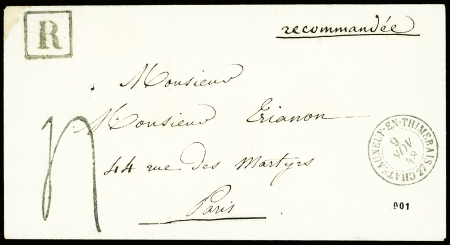 R
recommandée
Monsieur
Monsieur Trianon
44 rue des Martyrs
Paris
CHATEAUNEUF-EN-THIMERAIS 27
9
NOV
48
901